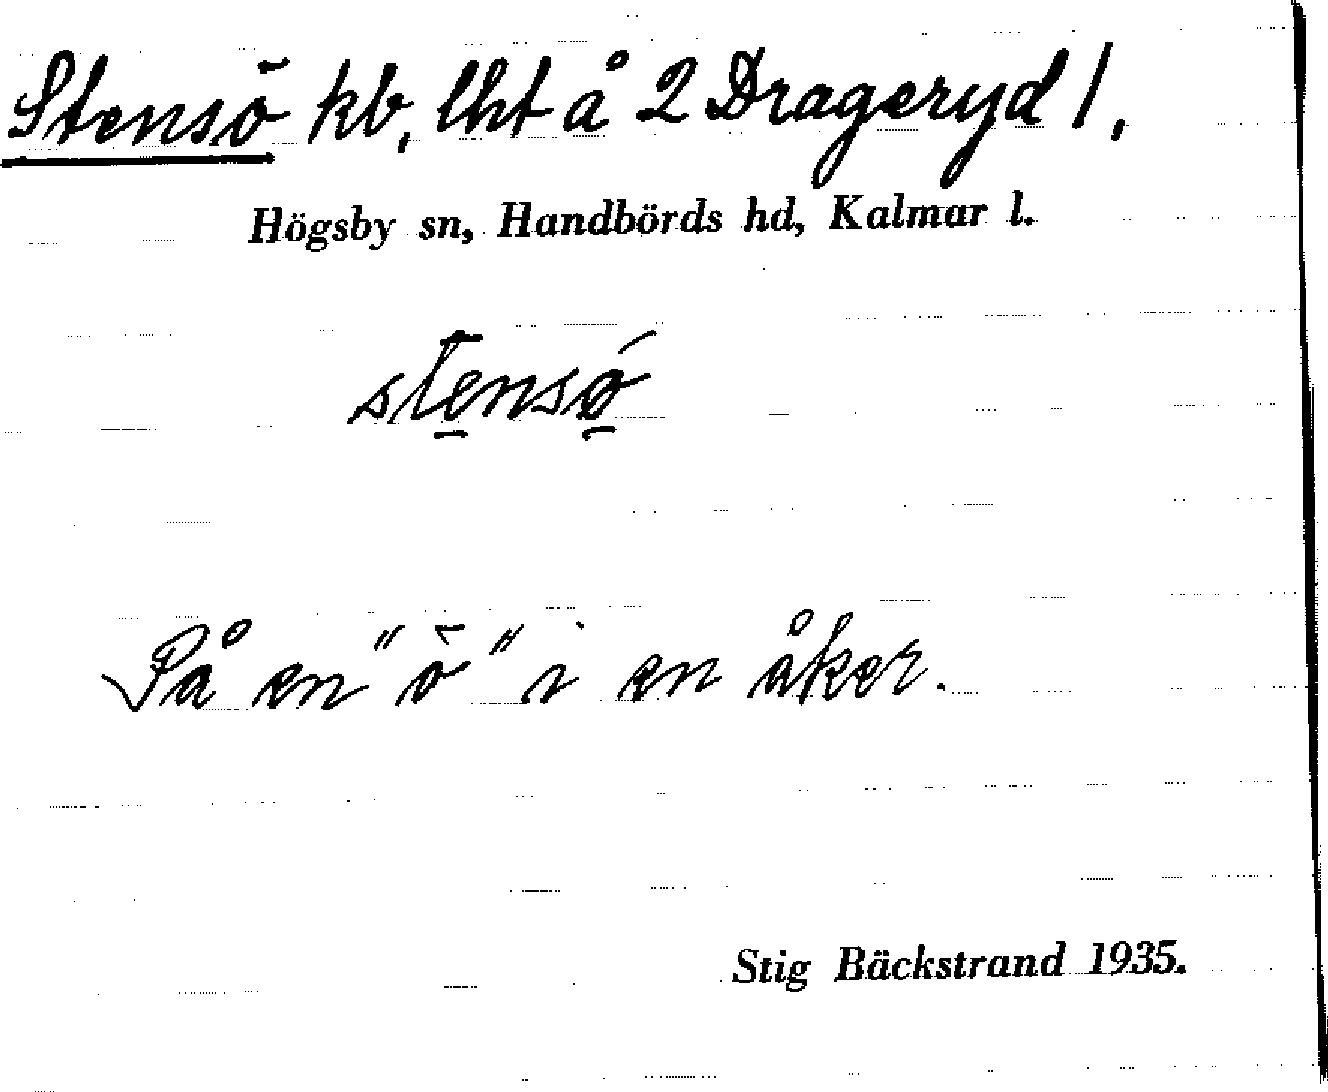 Stensö kb, lht å 2 Drageryd 1,
Högsby sn, Handbörds hd, Kalmar l.
stensö́
På en "ö" i en åker.
Stig Bäckstrand 1935.